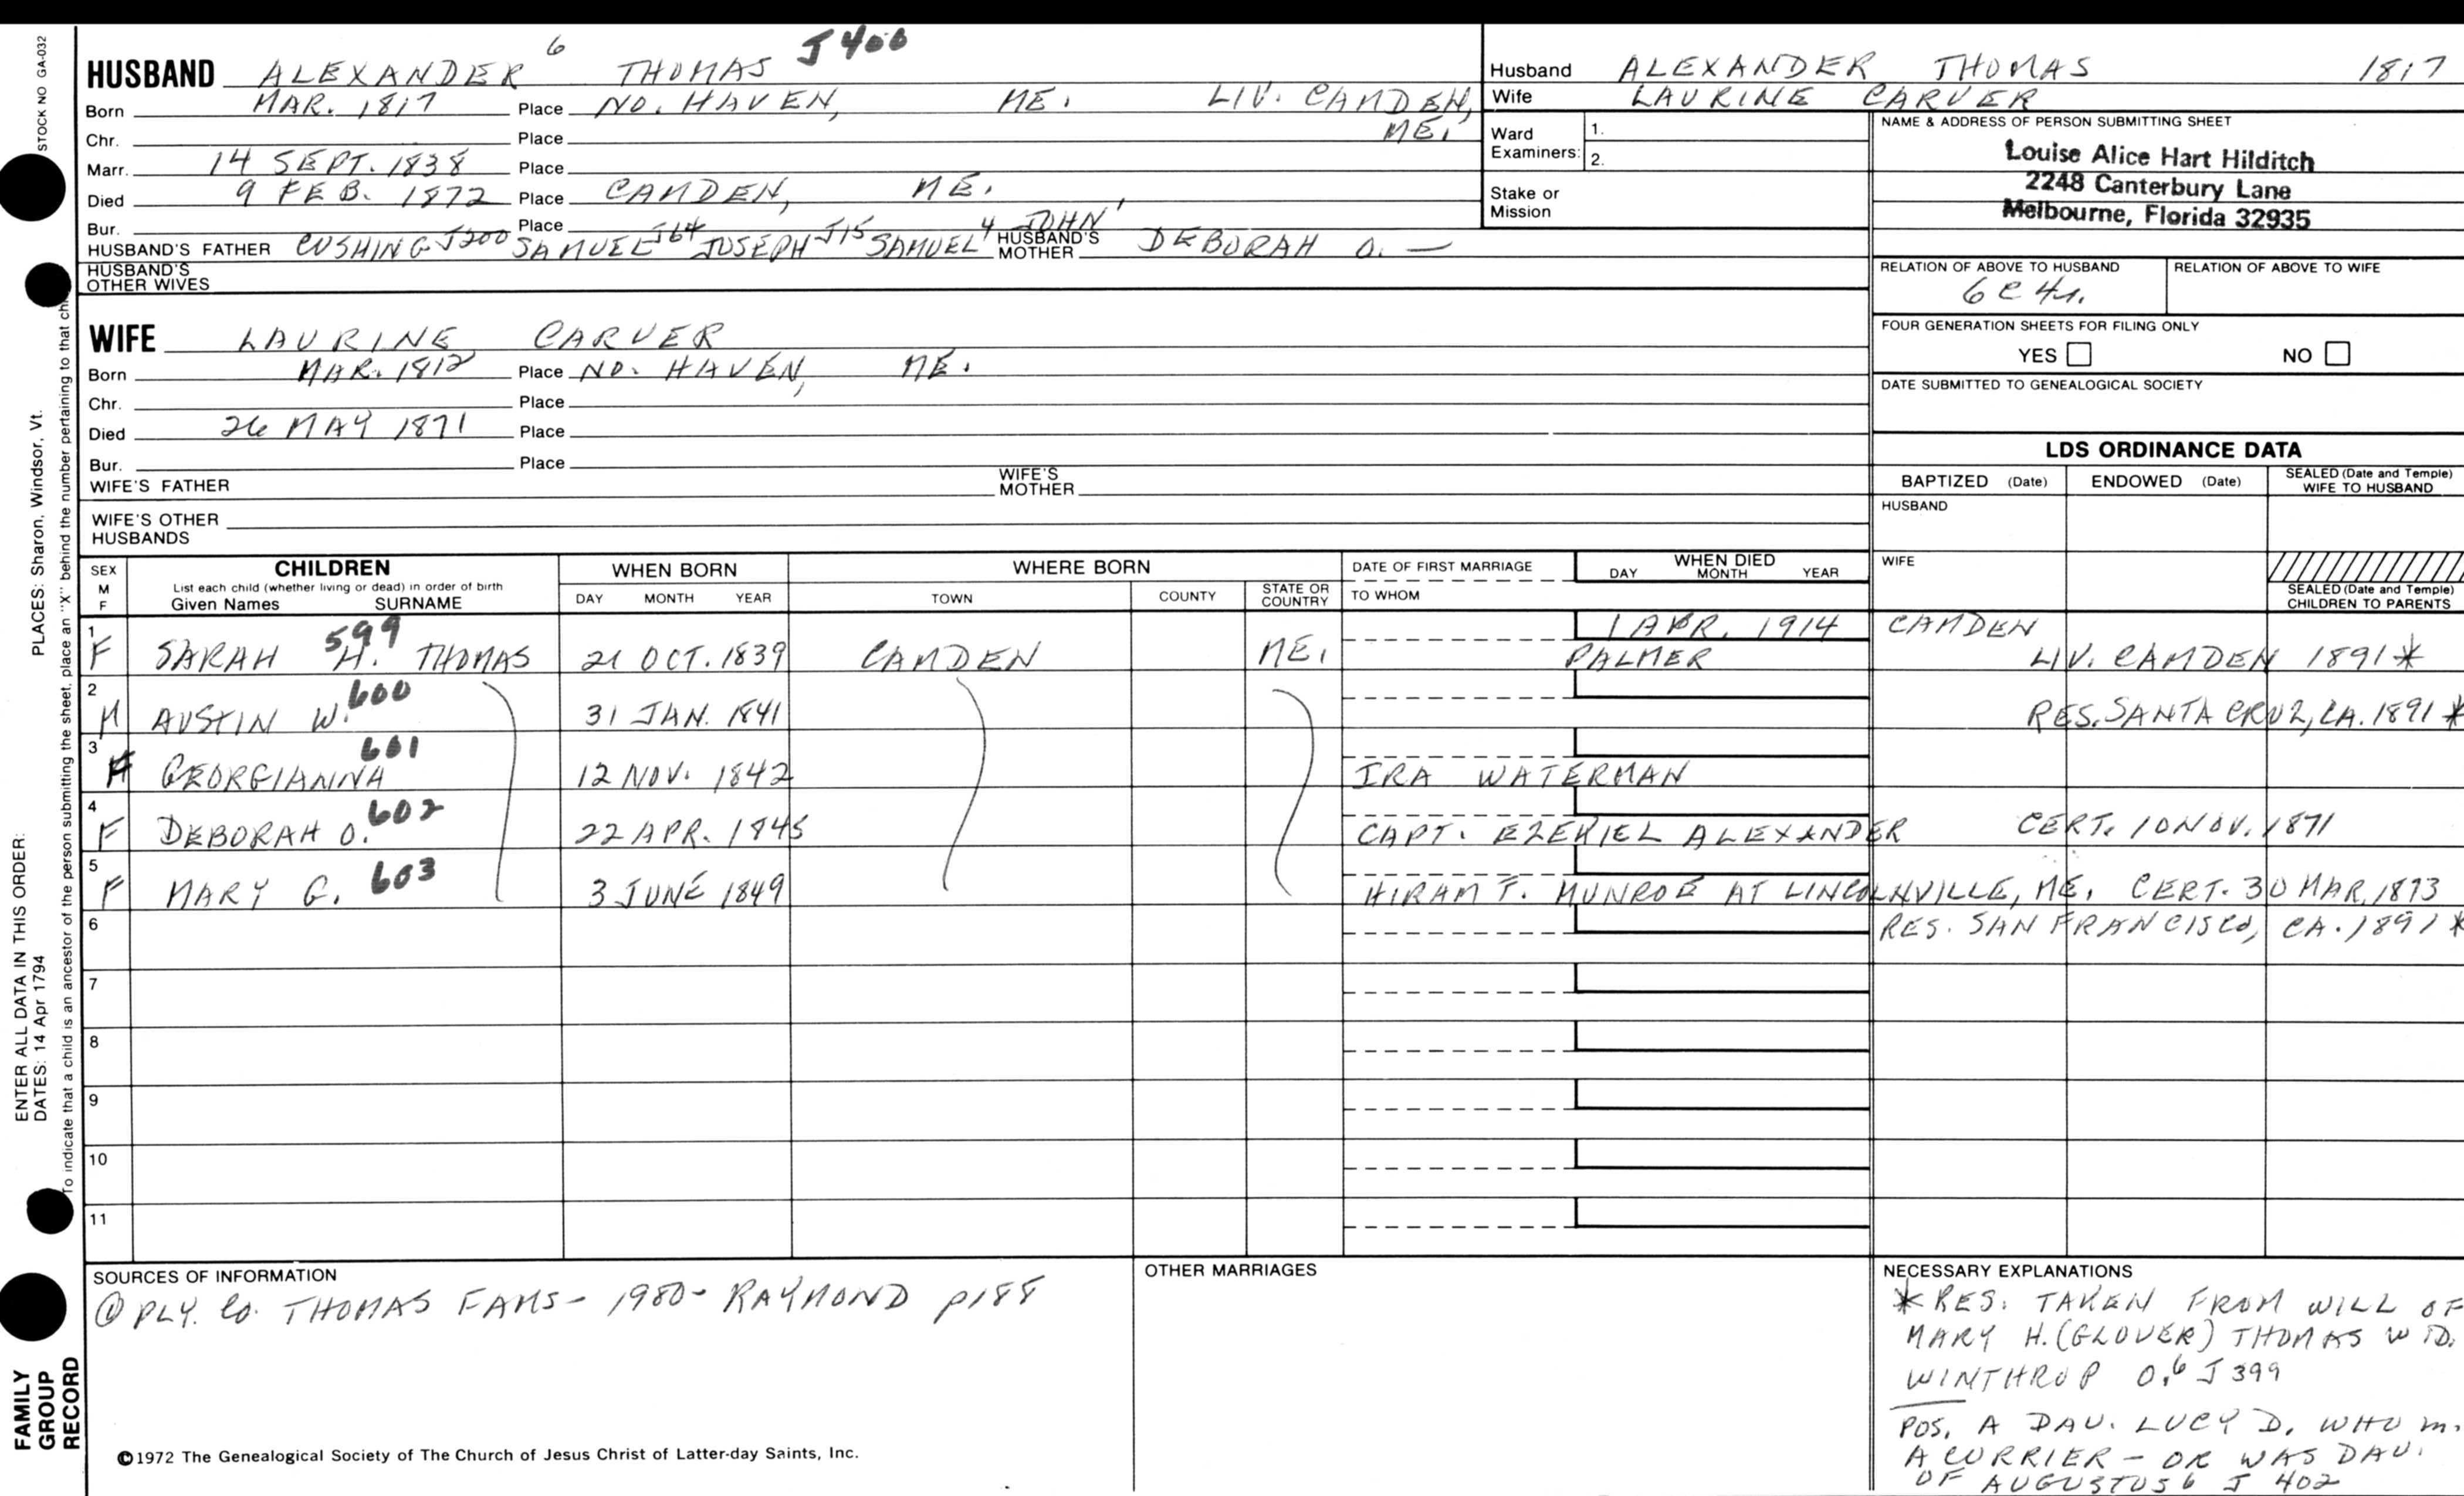 STOCK NO GA-032
HUSBAND ALEXANDER 6 THOMAS J 400
Born MAR. 1817 Place NO. HAVEN, ME. LIV. CAMDEN, ME.
Chr. Place
Marr. 14 SEPT. 1838 Place
Died 9 FEB. 1872 Place CAMDEN, ME.
Bur. Place
HUSBAND'S FATHER CUSHING J200 SAMUEL J64 JOSEPH J15 SAMUEL 4 JOHN' HUSBAND'S MOTHER DEBORAH O. —
HUSBAND'S OTHER WIVES
WIFE LAURINE CARVER
Born MAR. 1812 Place NO. HAVEN, ME.
Chr. Place
Died 26 MAY 1871 Place
Bur. Place
WIFE'S FATHER WIFE'S MOTHER
WIFE'S OTHER HUSBANDS
Husband ALEXANDER THOMAS 1817
Wife LAURINE CARVER
Ward Examiners: 1.
2.
Stake or Mission
NAME & ADDRESS OF PERSON SUBMITTING SHEET
Louise Alice Hart Hilditch
2248 Canterbury Lane
Melbourne, Florida 32935
RELATION OF ABOVE TO HUSBAND RELATION OF ABOVE TO WIFE
6C 4r.
FOUR GENERATION SHEETS FOR FILING ONLY
YES NO
DATE SUBMITTED TO GENEALOGICAL SOCIETY
LDS ORDINANCE DATA
BAPTIZED (Date) ENDOWED (Date) SEALED (Date and Temple) WIFE TO HUSBAND
HUSBAND
WIFE
SEALED (Date and Temple) CHILDREN TO PARENTS
SEX M F CHILDREN List each child (whether living or dead) in order of birth Given Names SURNAME
WHEN BORN DAY MONTH YEAR
WHERE BORN TOWN COUNTY STATE OR COUNTRY
DATE OF FIRST MARRIAGE TO WHOM
WHEN DIED DAY MONTH YEAR
1 F SARAH H. 599 THOMAS 21 OCT. 1839 CAMDEN ME. PALMER 1 APR. 1914 CAMDEN LIV. CAMDEN 1891 *
2 M AUSTIN W. 600 31 JAN. 1841 RES. SANTA CRUZ, CA. 1891 *
3 F GEORGIANNA 601 12 NOV. 1842 IRA WATERMAN
4 F DEBORAH O. 602 22 APR. 1845 CAPT. EZEKIEL ALEXANDER CERT. 10 NOV. 1871
5 F MARY G. 603 3 JUNE 1849 HIRAM T. MUNROE AT LINCOLNVILLE, ME. CERT. 30 MAR. 1873
6 RES. SAN FRANCISCO, CA. 1891 *
7
8
9
10
11
SOURCES OF INFORMATION
@ PLY. CO. THOMAS FAMS - 1980 - RAYMOND p188
OTHER MARRIAGES
NECESSARY EXPLANATIONS
* RES. TAKEN FROM WILL OF
MARY H. (GLOVER) THOMAS WID.
WINTHROP O.6 J 399
POS. A DAU. LUCY D. WHO m.
A CURRIER - OR WAS DAU.
OF AUGUSTUS 6 J 402
©1972 The Genealogical Society of The Church of Jesus Christ of Latter-day Saints, Inc.
FAMILY GROUP RECORD
ENTER ALL DATA IN THIS ORDER:
DATES: 14 Apr 1794
PLACES: Sharon, Windsor, Vt.
To indicate that a child is an ancestor of the person submitting the sheet, place an "X" behind the number pertaining to that